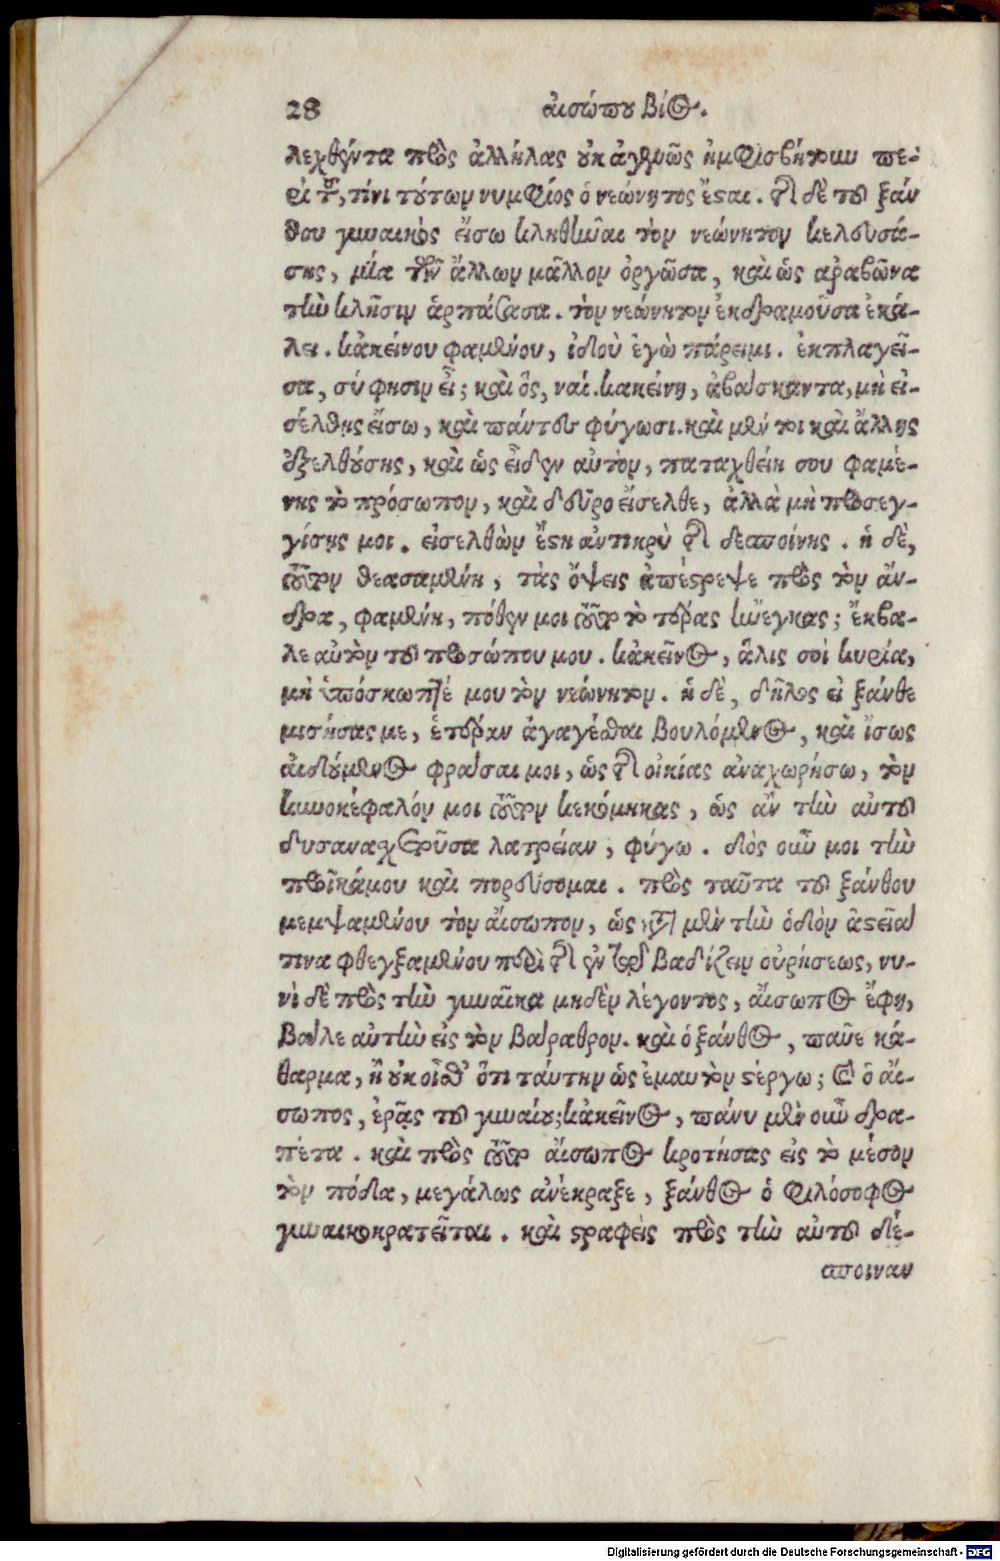 28 αἰσώπου βίος.
λεχθέντα πρὸς ἀλλήλας οὐκ ἀγεννῶς ἠμφισβήτουν πε-
ρὶ τοῦ, τίνι τούτων νυμφίος ὁ νεώνητος ἔσαι. τῆς δὲ τοῦ ξάν
θου γυναικὸς εἴσω κληθῆναι τὸν νεώνητον κελευσά-
σης, μία τῶν ἄλλων μᾶλλον ὀργῶσα, καὶ ὡς ἀῤῥαβῶνα
τὴν κλῆσιν ἁρπάσασα. τὸν νεώνητον ἐκδραμοῦσα ἐκά-
λει. κἀκείνου φαμένου, ἰδοὺ ἐγὼ πάρειμι. ἐκπλαγεῖ-
σα, σύ φησιν εἶ; καὶ ὃς, ναί. κακείνη, ἀβάσκαντα, μὴ εἰ-
σέλθῃς εἴσω, καὶ πάντες φύγωσι. καὶ μέν τοι καὶ ἄλλης
ἐξελθούσης, καὶ ὡς εἶδεν αὐτὸν, παταχθείη σου φαμέ-
νης τὸ πρόσωπον, καὶ δεῦρο εἴσελθε, ἀλλὰ μὴ προσεγ-
γίσῃς μοι. εἰσελθὼν ἔστη ἀντικρὺ τῆς δεσποίνης. ἡ δὲ,
τοῦτον θεασαμένη, τὰς ὄψεις ἀπέστρεψε πρὸς τὸν ἄν-
δρα, φαμένη, πόθεν μοι τοῦτο τὸ τέρας ἤνεγκας; ἔκβα-
λε αὐτὸν τοῦ προσώπου μου. κἀκεῖνος, ἅλις σοὶ κυρία,
μὴ ὑπόσκωπτέ μου τὸν νεώνητον. ἡ δὲ, δῆλος εἶ ξάνθε
μισήσας με, ἑτέραν ἀγαγέσθαι βουλόμενος, καὶ ἴσως
αἰδούμενος φράσαι μοι, ὡς τῆς οἰκίας ἀναχωρήσω, τὸν
κυνοκέφαλόν μοι τοῦτον κεκόμηκας, ὡς ἂν τὴν αὐτοῦ
δυσαναχετοῦσα λατρείαν, φύγω. δὸς οὖν μοι τὴν
προῖκά μου καὶ πορεύσομαι. πρὸς ταῦτα τοῦ ξάνθου
μεμψαμένου τὸν αἴσωπον, ὡς κατὰ μὲν τὴν ὁδὸν ἀστεῖά
τινα φθεγξαμένου περὶ τῆς ἐν τῷ βαδίζειν οὐρήσεως, νυ-
νὶ δὲ πρὸς τὴν γυναῖκα μηδὲν λέγοντος, αἴσωπος ἔφη,
βάλε αὐτὴν εἰς τὸν βάραθρον. καὶ ὁ ξάνθος, παῦε κά-
θαρμα, ἢ οὐκ οἶσθ’ ὅτι ταύτην ὡς ἐμαυτὸν στέργω; καὶ ὁ αἴ-
σωπος, ἐρᾷς τοῦ γυναίου; κἀκεῖνος, πάνυ μὲν οὖν δρα-
πέτα. καὶ πρὸς τοῦτο αἴσωπος κροτήσας εἰς τὸ μέσον
τὸν πόδα, μεγάλως ἀνέκραξε, ξάνθος ὁ φιλόσοφος
γυναικοκρατεῖται. καὶ στραφεὶς πρὸς τὴν αὐτοῦ δέ-
σποιναν
Digitalisierung gefördert durch die Deutsche Forschungsgemeinschaft - DFG